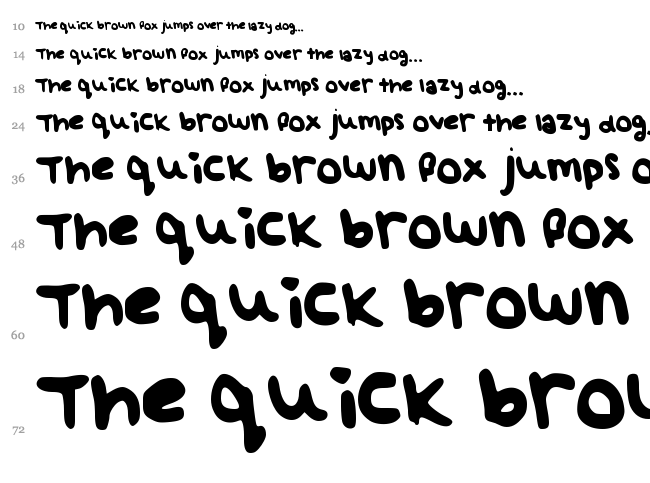 10 The quick brown fox jumps over the lazy dog...
14 The quick brown fox jumps over the lazy dog...
18 The quick brown fox jumps over the lazy dog...
24 The quick brown fox jumps over the lazy dog.
36 The quick brown fox jumps o
48 The quick brown fox
60 The quick brown
72 The quick brou